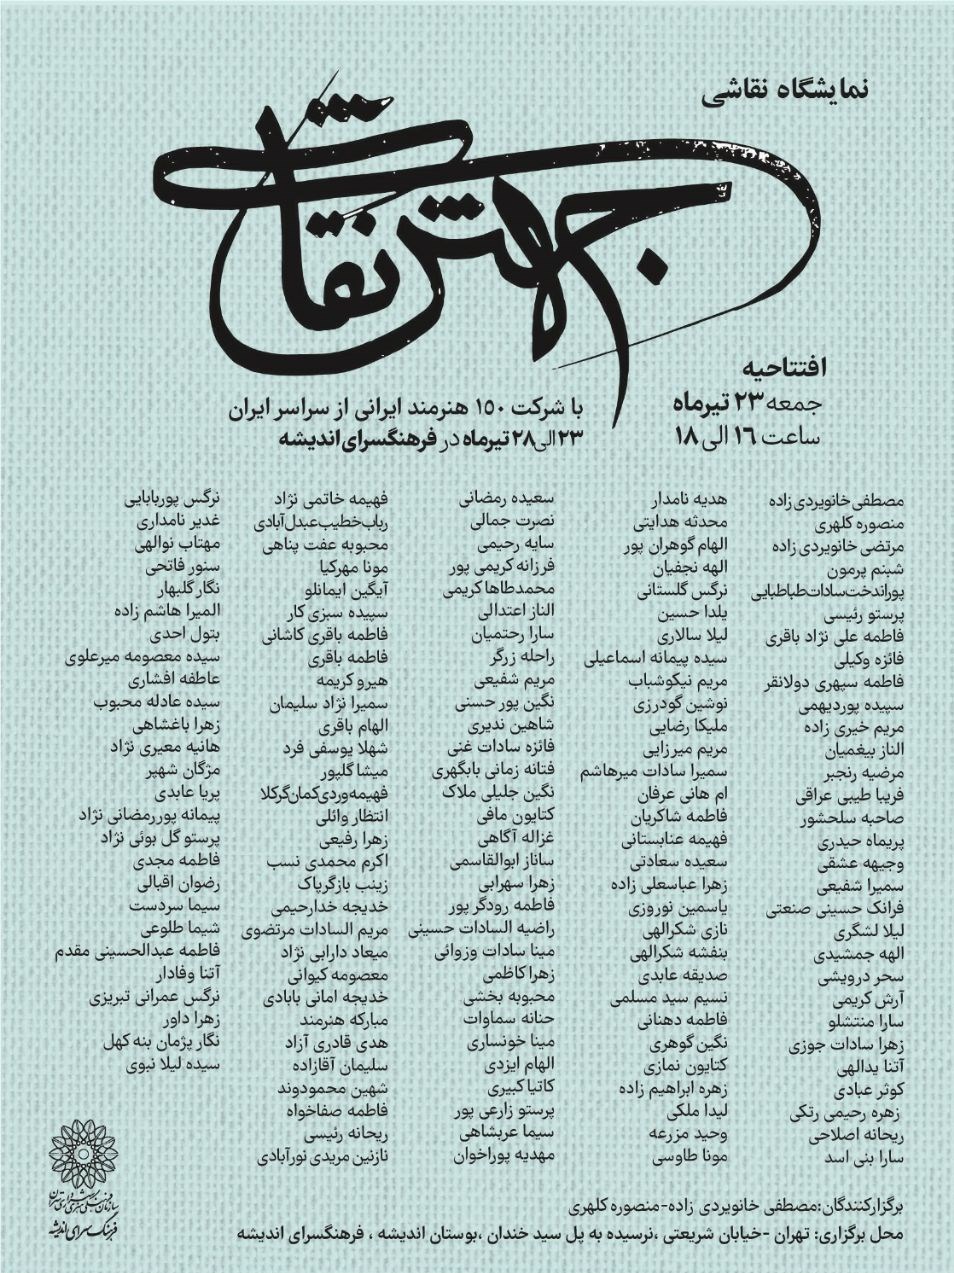 نمایشگاه نقاشی
جهش نقاشی
افتتاحیه
جمعه ۲۳ تیرماه
ساعت ۱۶ الی ۱۸
با شرکت ۱۵۰ هنرمند ایرانی از سراسر ایران
۲۳ الی ۲۸ تیرماه در فرهنگسرای اندیشه
مصطفی خانویردی زاده
منصوره کلهری
مرتضی خانویردی زاده
شبنم پرمون
پوراندخت سادات طباطبایی
پرستو رئیسی
فاطمه علی نژاد باقری
فائزه وکیلی
فاطمه سپهری دولانقر
سپیده پوردیهمی
مریم خیری زاده
الناز بیغمیان
مرضیه رنجبر
فریبا طیبی عراقی
صاحبه سلحشور
پریماه حیدری
وجیهه عشقی
سمیرا شفیعی
فرانک حسینی صنعتی
لیلا لشگری
الهه جمشیدی
سحر درویشی
آرش کریمی
سارا منتشلو
زهرا سادات جوزی
آتنا یدالهی
کوثر عبادی
زهره رحیمی رتکی
ریحانه اصلاحی
سارا بنی اسد
هدیه نامدار
محدثه هدایتی
الهام گوهران پور
الهه نجفیان
نرگس گلستانی
یلدا حسین
لیلا سالاری
سیده پیمانه اسماعیلی
مریم نیکوشباب
نوشین گودرزی
ملیکا رضایی
مریم میرزایی
سمیرا سادات میرهاشم
ام هانی عرفان
فاطمه شاکریان
فهیمه عنابستانی
سعیده سعادتی
زهرا عباسعلی زاده
یاسمین نوروزی
نازی شکرالهی
بنفشه شکرالهی
صدیقه عابدی
نسیم سید مسلمی
فاطمه دهنانی
نگین گوهری
کتایون نمازی
زهره ابراهیم زاده
لیدا ملکی
وحید مزرعه
مونا طاوسی
سعیده رمضانی
نصرت جمالی
سایه رحیمی
فرزانه کریمی پور
محمدطاها کریمی
الناز اعتدالی
سارا رحتمیان
راحله زرگر
مریم شفیعی
نگین پور حسنی
شاهین ندیری
فائزه سادات غنی
فتانه زمانی بابگهری
نگین جلیلی ملاک
کتایون مافی
غزاله آگاهی
ساناز ابوالقاسمی
زهرا سهرابی
فاطمه رودگر پور
راضیه السادات حسینی
مینا سادات وزوائی
زهرا کاظمی
محبوبه بخشی
حنانه سماوات
مینا خونساری
الهام ایزدی
کاتیا کبیری
پرستو زارعی پور
سیما عربشاهی
مهدیه پوراخوان
فهیمه خاتمی نژاد
رباب خطیب عبدل آبادی
محبوبه عفت پناهی
مونا مهرکیا
آیگین ایمانلو
سپیده سبزی کار
فاطمه باقری کاشانی
فاطمه باقری
هیرو کریمه
سمیرا نژاد سلیمان
الهام باقری
شهلا یوسفی فرد
میشا گلپور
فهیمه وردی کمان گرکلا
انتظار وائلی
زهرا رفیعی
اکرم محمدی نسب
زینب بازگرپاک
خدیجه خدارحیمی
مریم السادات مرتضوی
میعاد دارابی نژاد
معصومه کیوانی
خدیجه امانی بابادی
مبارکه هنرمند
هدی قادری آزاد
سلیمان آقازاده
شهین محمودوند
فاطمه صفاخواه
ریحانه رئیسی
نازنین مریدی نورآبادی
نرگس پوربابایی
غدیر نامداری
مهتاب نوالهی
سنور فاتحی
نگار گلبهار
المیرا هاشم زاده
بتول احدی
سیده معصومه میرعلوی
عاطفه افشاری
سیده عادله محبوب
زهرا باغشاهی
هانیه معیری نژاد
مژگان شهپر
پریا عابدی
پیمانه پوررمضانی نژاد
پرستو گل بوئی نژاد
فاطمه مجدی
رضوان اقبالی
سیما سردست
شیما طلوعی
فاطمه عبدالحسینی مقدم
آتنا وفادار
نرگس عمرانی تبریزی
زهرا داور
نگار پژمان بنه کهل
سیده لیلا نبوی
برگزارکنندگان:مصطفی خانویردی زاده-منصوره کلهری
محل برگزاری: تهران -خیابان شریعتی ،نرسیده به پل سید خندان ،بوستان اندیشه ، فرهنگسرای اندیشه
سازمان فرهنگی هنری شهرداری تهران
فرهنگ سرای اندیشه